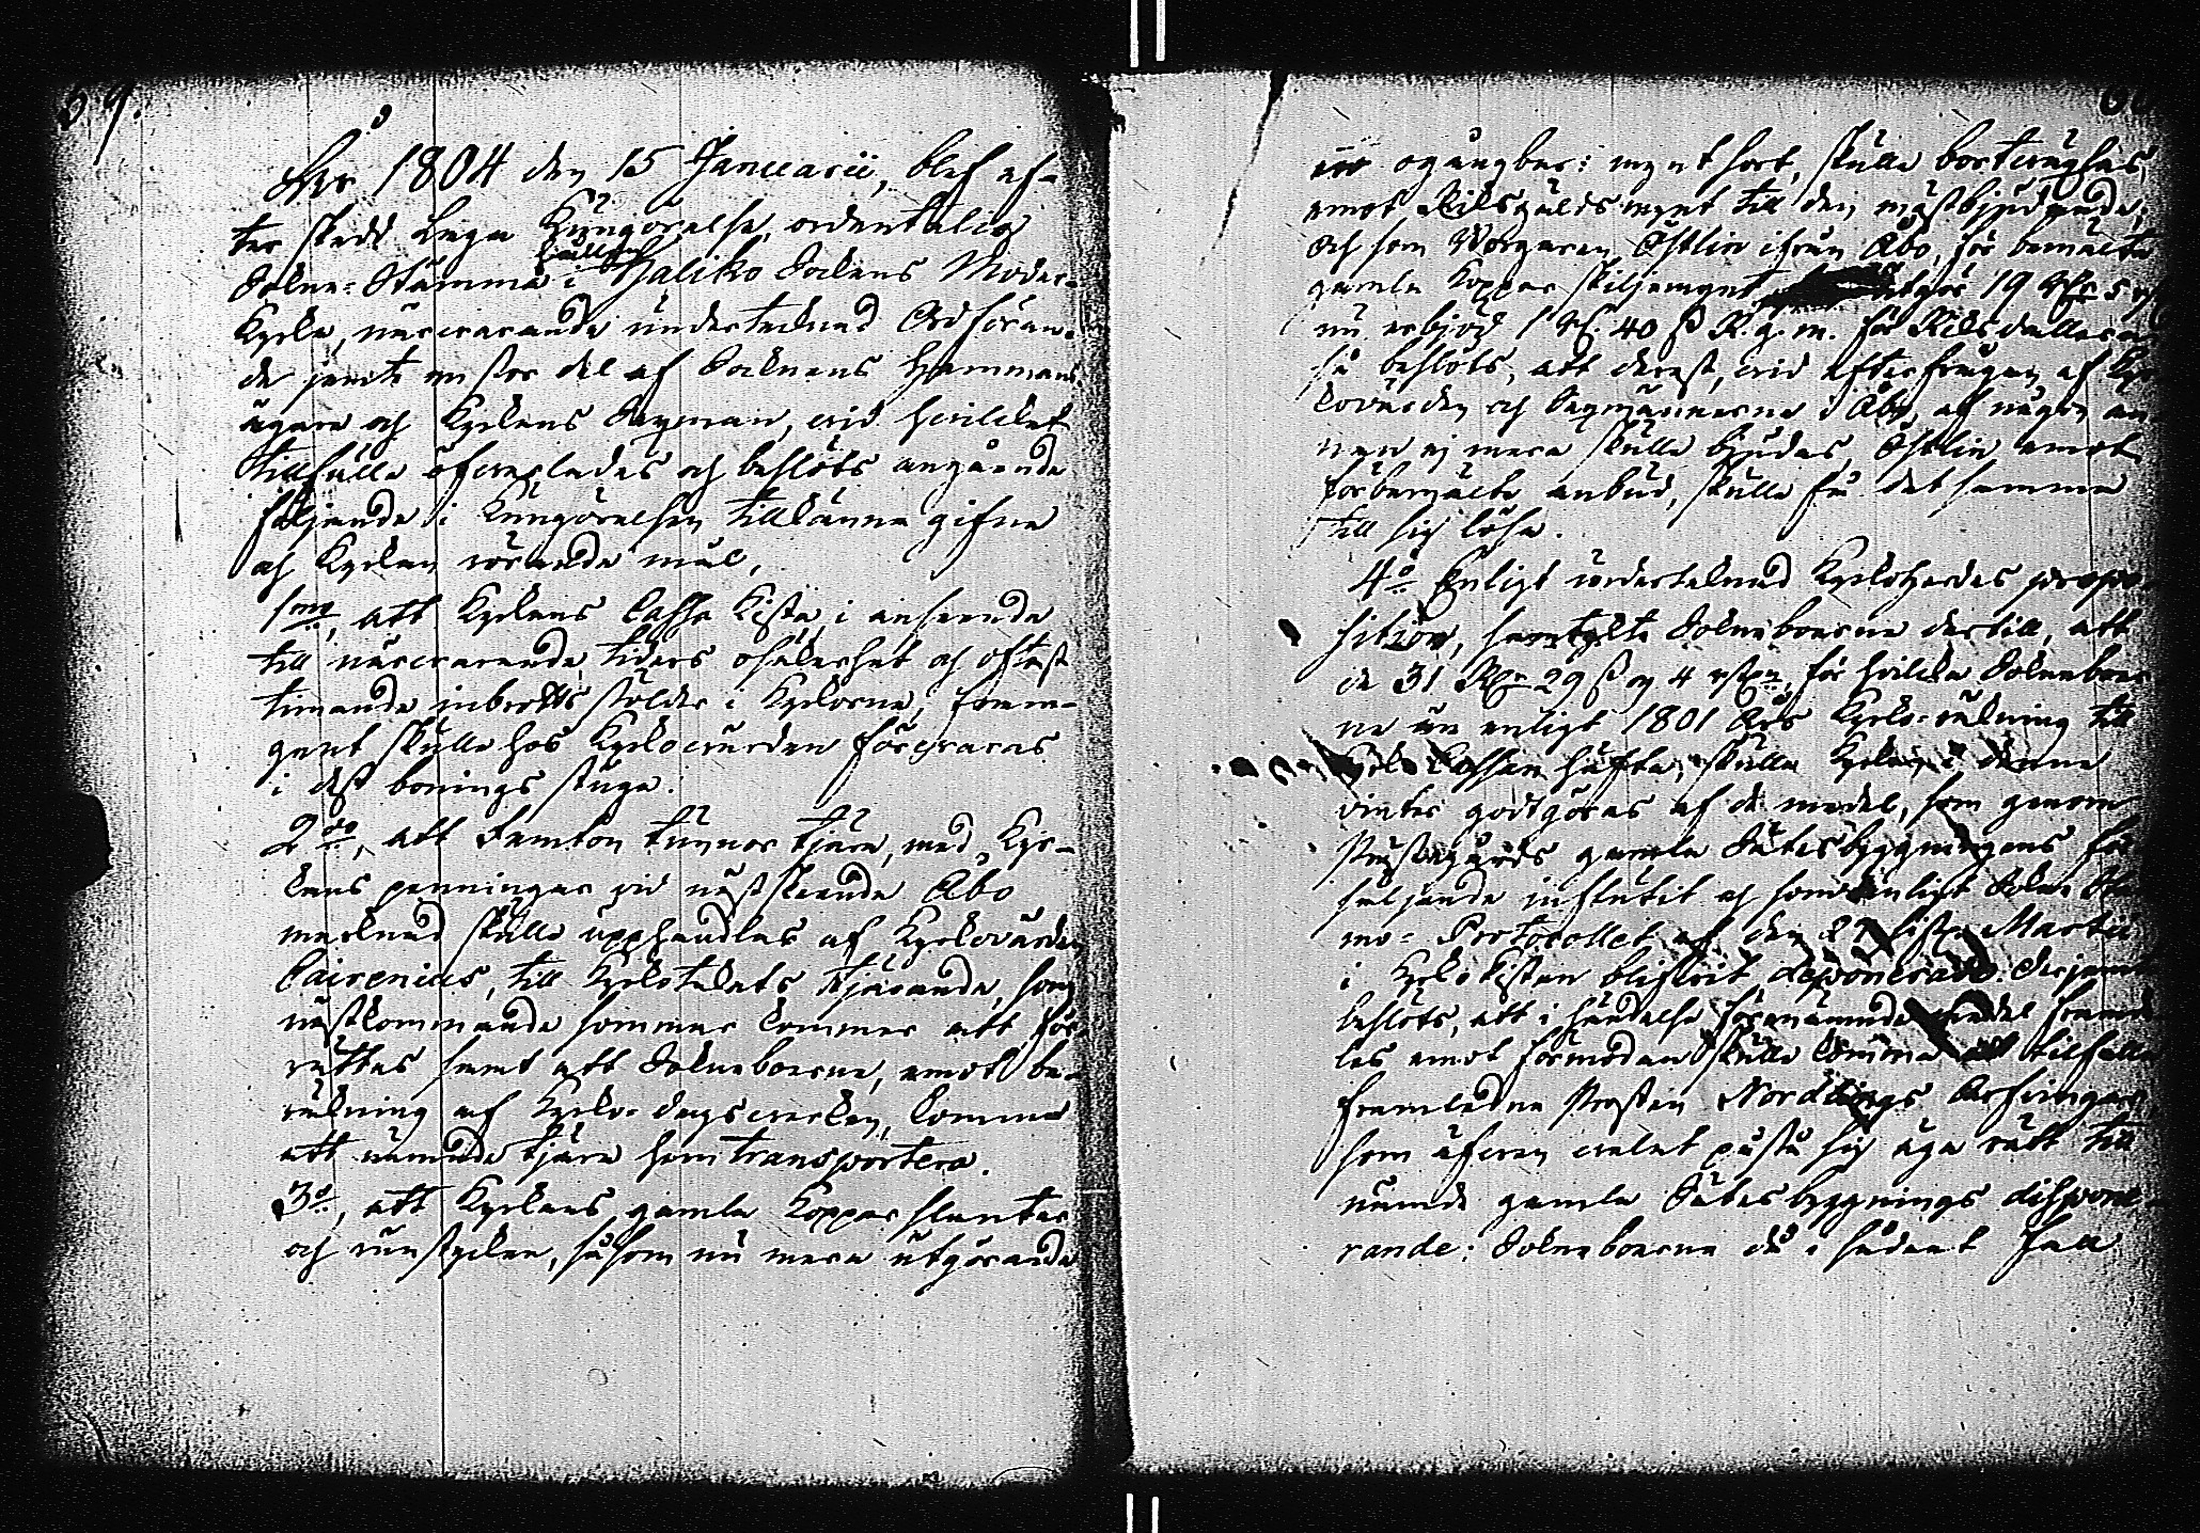 59.
År 1804 den 15 Januarii, blef ef-
ter skedd laga Kungörelse, ordentelig
hållen
Sokne-Stämma i Haliko Sokens Moder-
Kyrka, närvarande undertecknad Ordföran-
de jemte en stor del af Socknens Hemmans-
ägare och Kyrkans Sexman, vid hvilket
tillfälle öfverlades och beslöts angående
följande i Kungörelsen tillkänna gifne
och Kyrkan rörande mål,
1mo, att Kyrkans Cassa Kista, i anseende
till närvarande tiders osäkerhet och oftast
timande inbrotts stölder i Kyrkorna, fram-
gent skulle hos Kyrkovärden förvaras
i dess bonings stuga.
2do, att Femton tunnor tjära, med Kyr-
kans penningar vid nästskeende Åbo
marknad skulle upphandlas af Kyrkovärden
Cairenius, till Kyrkotakets tjärande, som
nästkommande sommar kommer att för-
rättas samt att Sokneboerne, emot be-
räkning af Kyrko-dagsverken, komma
att nämnde tjära hemtransportera.
3o, att Kyrkans gamla Koppar slantar
och runstycken, såsom nu mera utgörande
60
en ogångbar: myntsort, skulle bortväxlas,
emot Riksgälds mynt till den mästbjudande;
Och som Borgaren Östlin ifrån Åbo, för bemälte
gamla Koppar skiljemynt utgör 19 Rdr 5
nu erbjöd 1 Rd. 40 ß R.g.m. för Riksdallern
så beslöts, att derest, vid efterfrågan af Kyr-
kovärden och Sexmännerne i Åbo, af någon an-
nan ej mera skulle bjudas, Östlin emot
förbemälte anbud, skulle få det samma
till sig lösa.
4o Enligt undertecknad Kyrkoherdes propo-
sition, samtykte Sokneboerne dertill, att
de 31 Rdr 29 ß och 4 rst, för hvilka Sokneboer-
ne än enligt 1801 Års Kyrko-räkning till
Kyrko Cassan häfta, skulle Kyrkan i denne
vinter godtgöras af de medel, som genom
Prästegårds gamla Sätesbyggningens för-
säljande influtit och som enligt Sokne Stäm-
mo-Protocollet af den 27 sistl. Martii
i Kyrkokistan blifvit deponerade. Derjemte
beslöts, att i händelse förenämnde medel framde-
les emot förmodan skulle komma att tilfalla
framledne Prosten Nordlings Arfvingar,
som äfven velat påstå sig äga rätt till
nämde gamla Sätesbyggnings dispone-
rande: Sokneboerne då i sådant fall